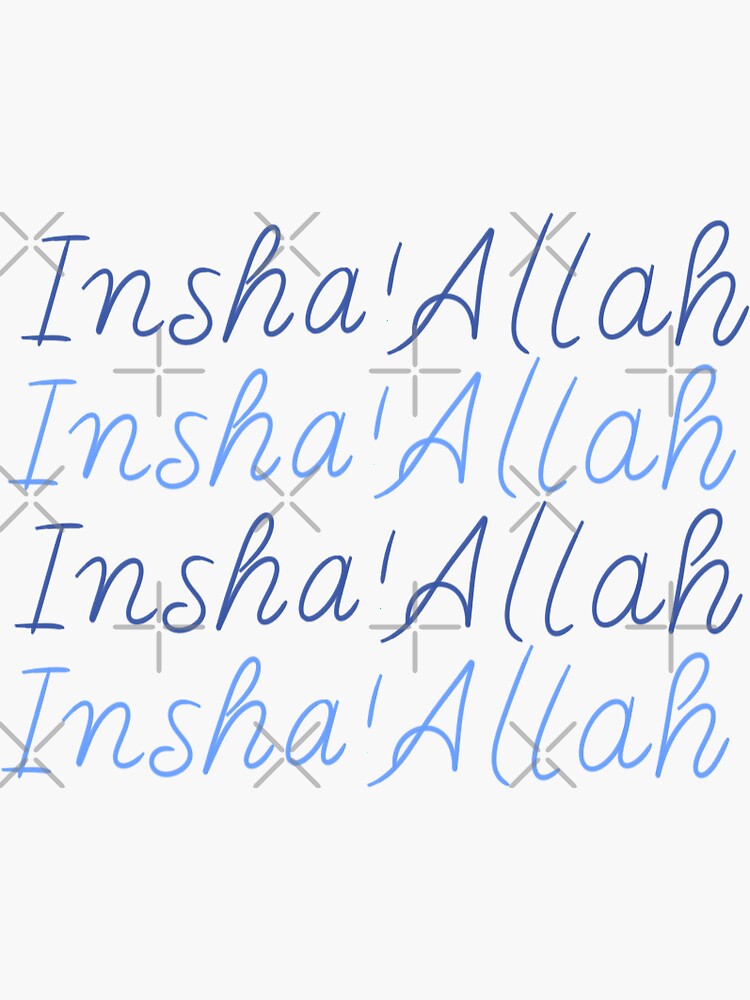 Insha'Allah
Insha'Allah
Insha'Allah
Insha'Allah